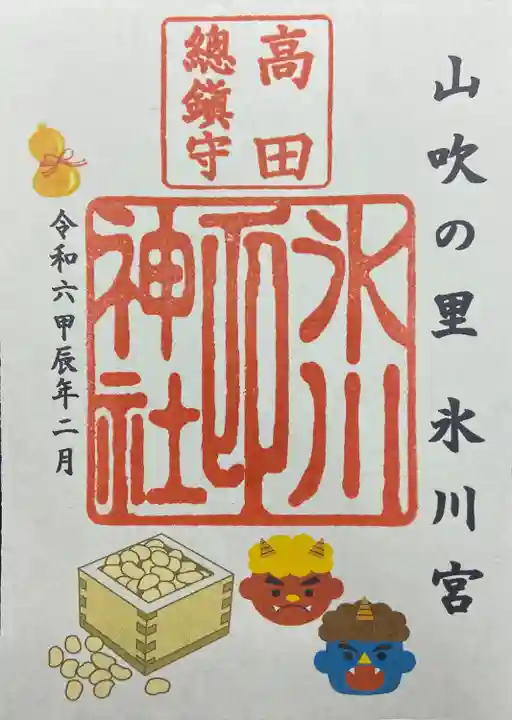 山吹の里 氷川宮
高田
總鎮守
氷川
神社
印
令和六甲辰年二月